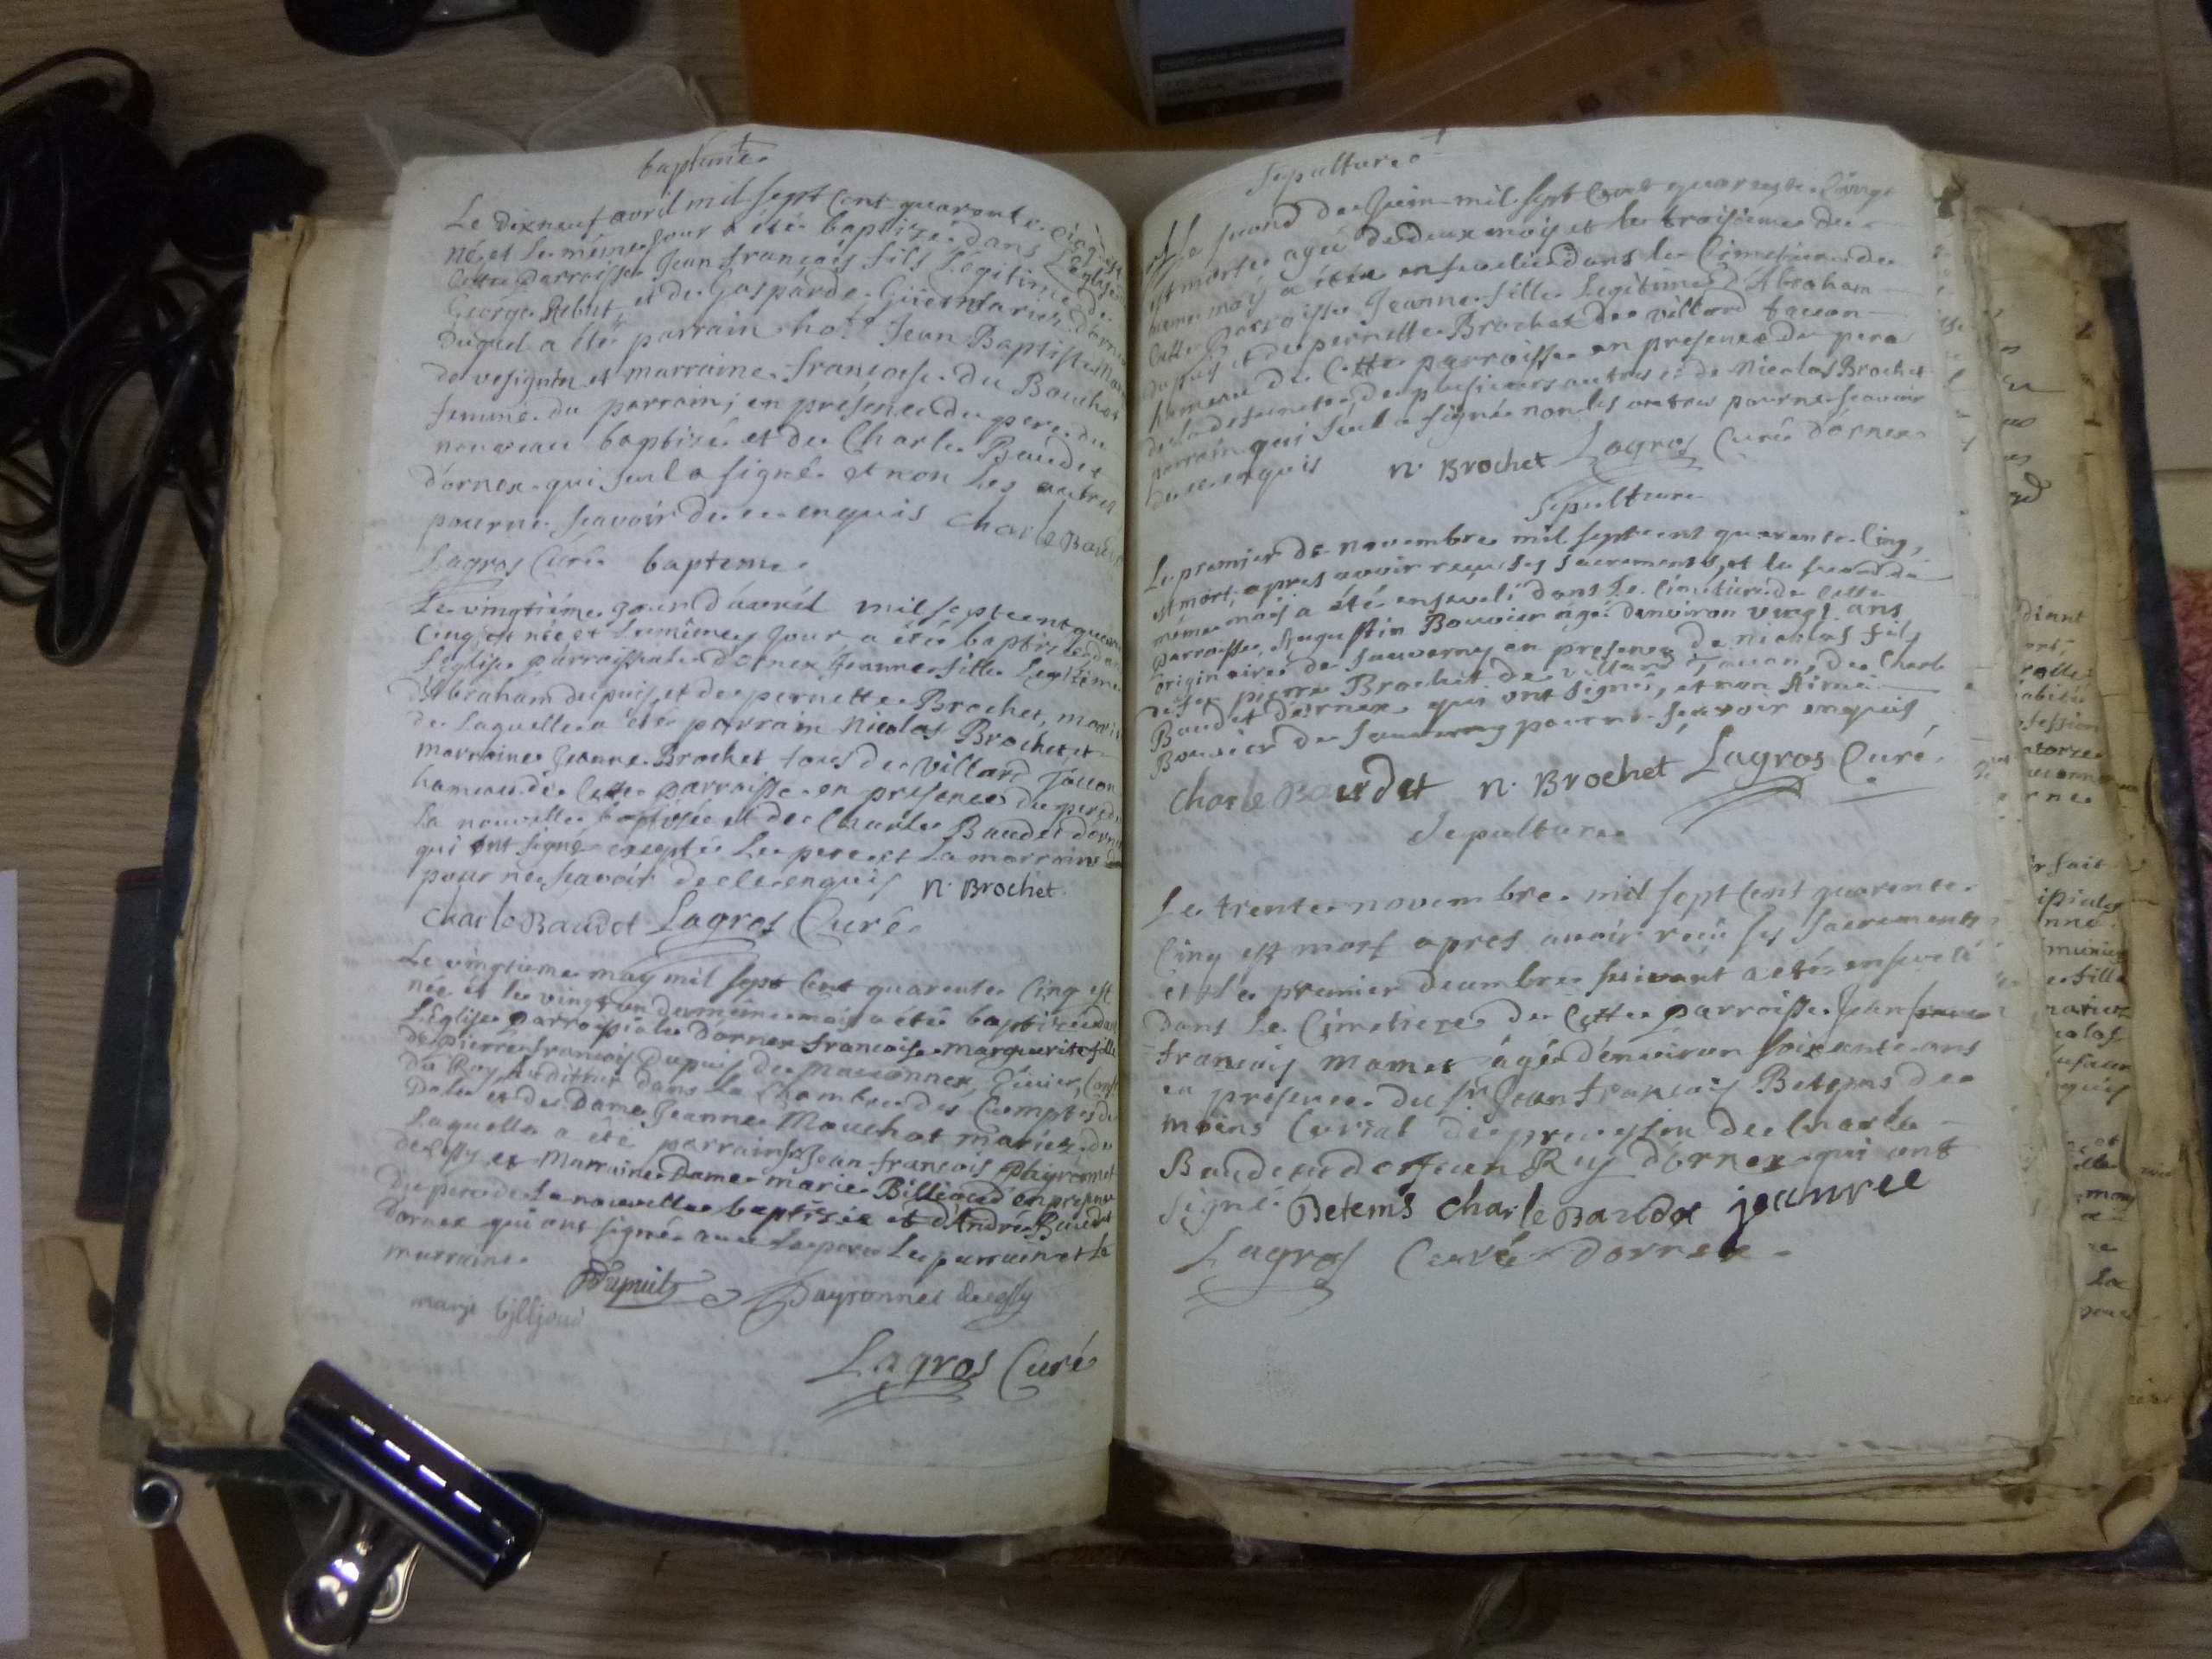 baptême
Le dixneuf avril mil sept cent quarante cinq est
né et le même jour a été baptizé dans L'église
cette parroisse Jean françois fils Légitime de
George Rebut, et de Gasparde mariez d'ornex
duquel a été parrain ho. Jean Baptiste
de vesignin et marraine françoise du Bouchet
femme du parrain; en présence du pere du
nouveau baptizé et de Charle Baudet
d'ornex qui seul a signé et non les autres
pour ne scavoir de ce enquis Charle Baudet
Lagros Curé baptême
Le vingtiéme jour d'avril mil sept cent quarante
Cinq est née et le même jour a été baptizée dans
L'église parroissiale d'ornex Jeanne fille Legitime
d'Abraham dupuis et de pernette Brochet, mariez
de laquelle a été parrain Nicolas Brochet et
marraine Jeanne Brochet tous de Villard Tacon
hameau de Cette parroisse en présence du pere de
la nouvelle baptisée et de Charle Baudet d'ornex
qui ont signé excepté le pere et la marraine
pour ne scavoir de ce enquis n. Brochet
Charle Baudet Lagros Curé
Le vingtieme may mil sept cent quarante Cinq est
née et le vingt un du même mois a été baptizée dans
L'église parroissiale d'ornex françoise marguerite fille
de pierre françois Dupuis de Maconnex,
du Roy Auditeur dans la Chambre des Comptes de
Dole et de Dame Jeanne Mouchot mariez de
Laquelle a été parrain Jean françois
et Marraine Dame marie Billioud en présence
du pere de la nouvelle baptisée et d'André Baudet
d'ornex qui ont signé avec le pere le parrain et la
marraine
Dupuits
marje bjlljoud
Lagros Curé
Sepulture
Le second de Juin mil sept cent quarante Cinq
est morte agée de deux mois et le troisieme du
meme mois a été ensevelie dans le Cimetiere de
Cette Parroisse Jeanne fille Legitime d'Abraham
dupuis et de pernette Brochet de villard tacon
hameau de Cette parroisse en presence du pere
de la defuncte de plusieurs autres et de Nicolas Brochet
parrain qui seul a signé non les autres pour ne scavoir
de ce enquis n. Brochet Lagros Curé d'ornex
Sepulture
Le premier de novembre mil sept cent quarente Cinq,
est mort, apres avoir reçu ses sacrements, et le second du
même mois a été enseveli dans le Cimetiere de Cette
parroisse, Augustin Bouvier âgé d'environ vingt ans
originaire de Sauverny en présence de nicolas fils
de pierre Brochet de villard Tacon, de Charle
Baudet d'ornex qui ont signé, et non Aimé
Bouvier de Sauverny pour ne scavoir enquis
Charle Baudet n. Brochet Lagros Curé
Sepulture
Le trente novembre mil sept cent quarente
Cinq est mort apres avoir reçu ses Sacrements
et le premier decembre suivant a été enseveli
dans le Cimetiere de Cette parroisse Jean
françois Mamet âgé d'environ soixante ans
en presence du sr Jean françois Betems de
moins Curial de prevessin de Charle
Baudet et de Jean Rey d'ornex qui ont
signé Betems Charle Baudet jean rei
Lagros Curé d'ornex